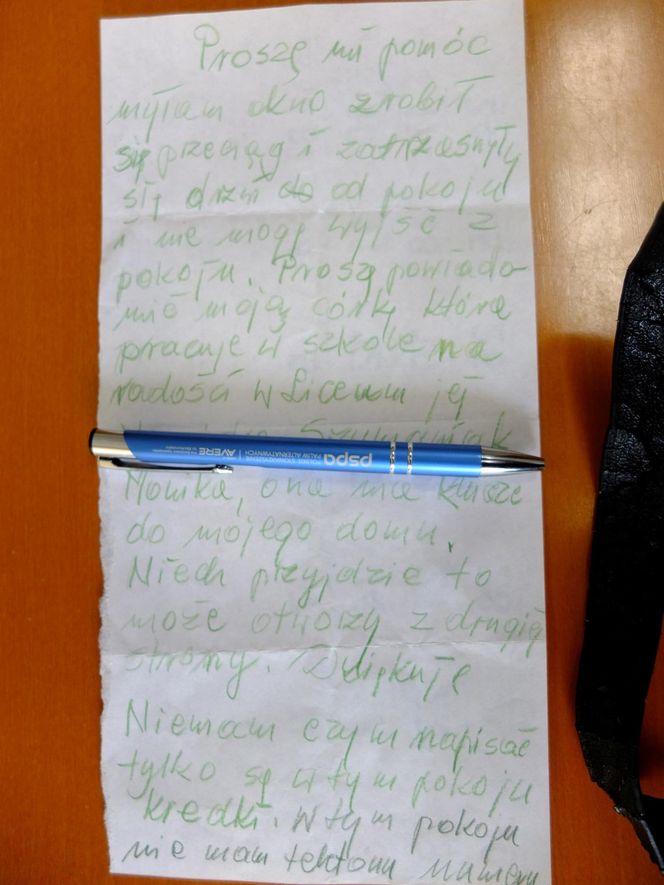 Proszę mi pomóc
myłam okno zrobił
się przeciąg i zatrzasnęły
się drzwi do od pokoju
i nie mogę wyjść z
pokoju. Proszę powiado-
mić moją córkę która
pracuje w szkole na
radość w Liceum jej
Monika, ona ma klucze
do mojego domu.
Niech przyjdzie to
może otworzy z drugiej
strony. Dziękuję
Niemam czym napisać
tylko są w tym pokoju
kredki. W tym pokoju
nie mam telefonu numeru
pspa
POLSKIE STOWARZYSZENIE
PALIW ALTERNATYWNYCH
AVERE